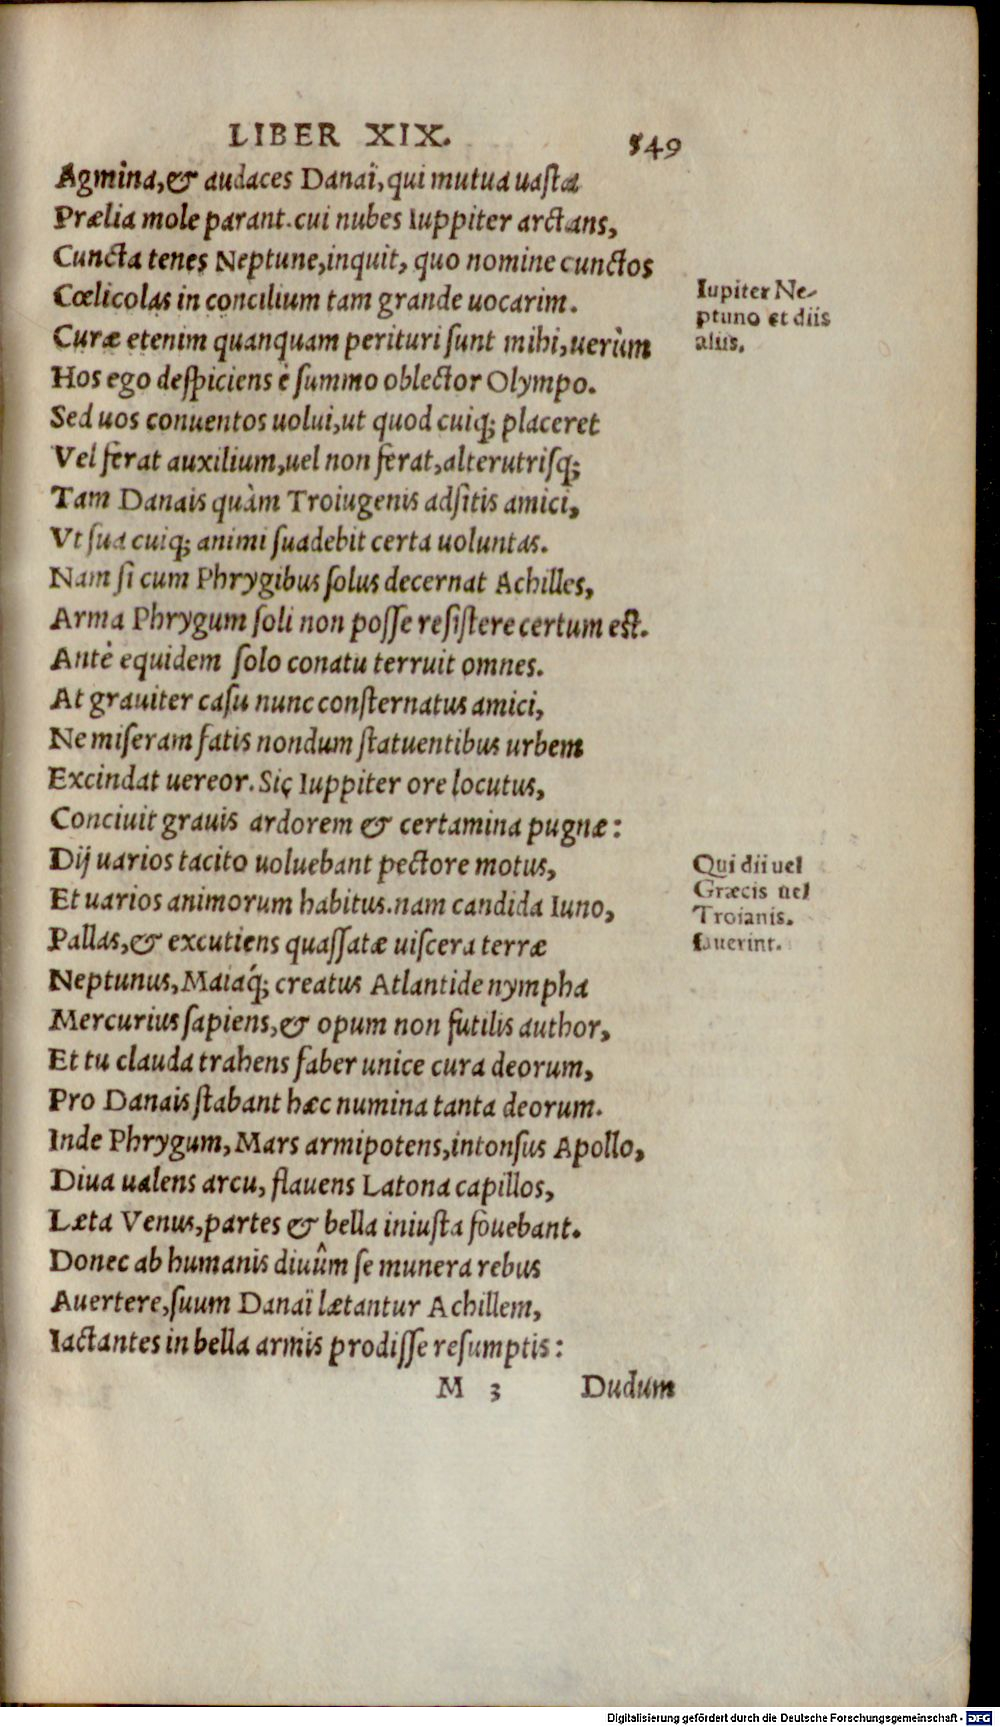 LIBER XIX. 549
Agmina,& audaces Danaï,qui mutua uasta
Prælia mole parant.cui nubes Iuppiter arctans,
Cuncta tenes Neptune,inquit, quo nomine cunctos
Cœlicolas in concilium tam grande uocarim.
Iupiter Ne-
ptuno et diis
aliis.
Curæ etenim quanquam perituri ſunt mihi,uerùm
Hos ego deſpiciens è ſummo oblector Olympo.
Sed uos conuentos uolui,ut quod cuiq; placeret
Vel ferat auxilium,uel non ferat,alterutriſq;
Tam Danais quàm Troiugenis adſitis amici,
Vt ſua cuiq; animi ſuadebit certa uoluntas.
Nam ſi cum Phrygibus ſolus decernat Achilles,
Arma Phrygum ſoli non poſſe reſiſtere certum eſt.
Antè equidem ſolo conatu terruit omnes.
At grauiter caſu nunc conſternatus amici,
Ne miſeram fatis nondum ſtatuentibus urbem
Excindat uereor. Sic Iuppiter ore locutus,
Conciuit grauis ardorem & certamina pugnæ:
Dij uarios tacito uoluebant pectore motus,
Et uarios animorum habitus.nam candida Iuno,
Qui dii uel
Græcis uel
Troianis.
fauerint.
Pallas,& excutiens quaſſatæ uiſcera terræ
Neptunus,Maiaq́; creatus Atlantide nympha
Mercurius ſapiens,& opum non futilis author,
Et tu clauda trahens faber unice cura deorum,
Pro Danais ſtabant hæc numina tanta deorum.
Inde Phrygum,Mars armipotens,intonſus Apollo,
Diua ualens arcu, flauens Latona capillos,
Læta Venus,partes & bella iniuſta fouebant.
Donec ab humanis diuûm ſe munera rebus
Auertere,ſuum Danaï lætantur Achillem,
Iactantes in bella armis prodiſſe reſumptis:
M 3 Dudum
Digitalisierung gefördert durch die Deutsche Forschungsgemeinschaft - DFG